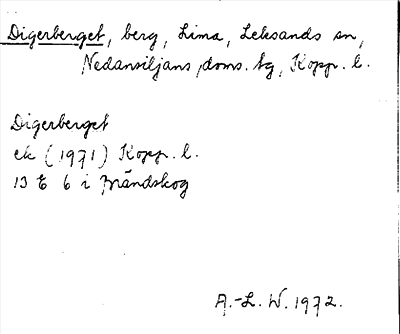 Digerberget, berg, Lima, Leksands sn,
Nedansiljans doms. tg, Kopp. l.
Digerberget
ek (1971) Kopp. l.
13 E 6 i Brändskog
A.-L. W. 1972.